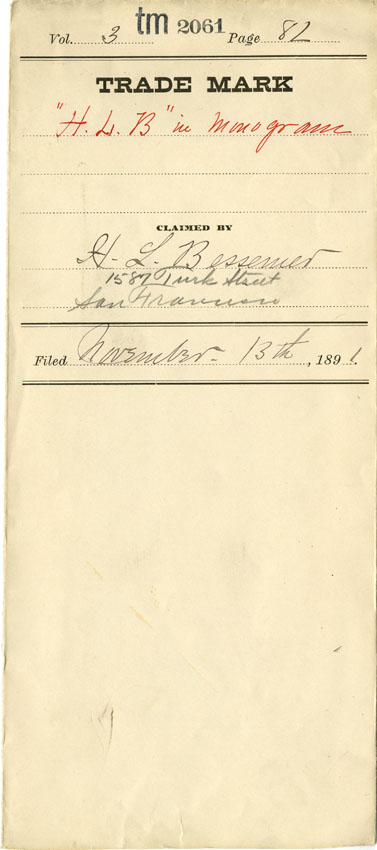 tm 2061
Vol. 3 Page 82
TRADE MARK
"H. L. B" in Monogram
CLAIMED BY
H. L. Bessemer
1587 Turk Street
San Francisco
Filed November. 13th, 1891.